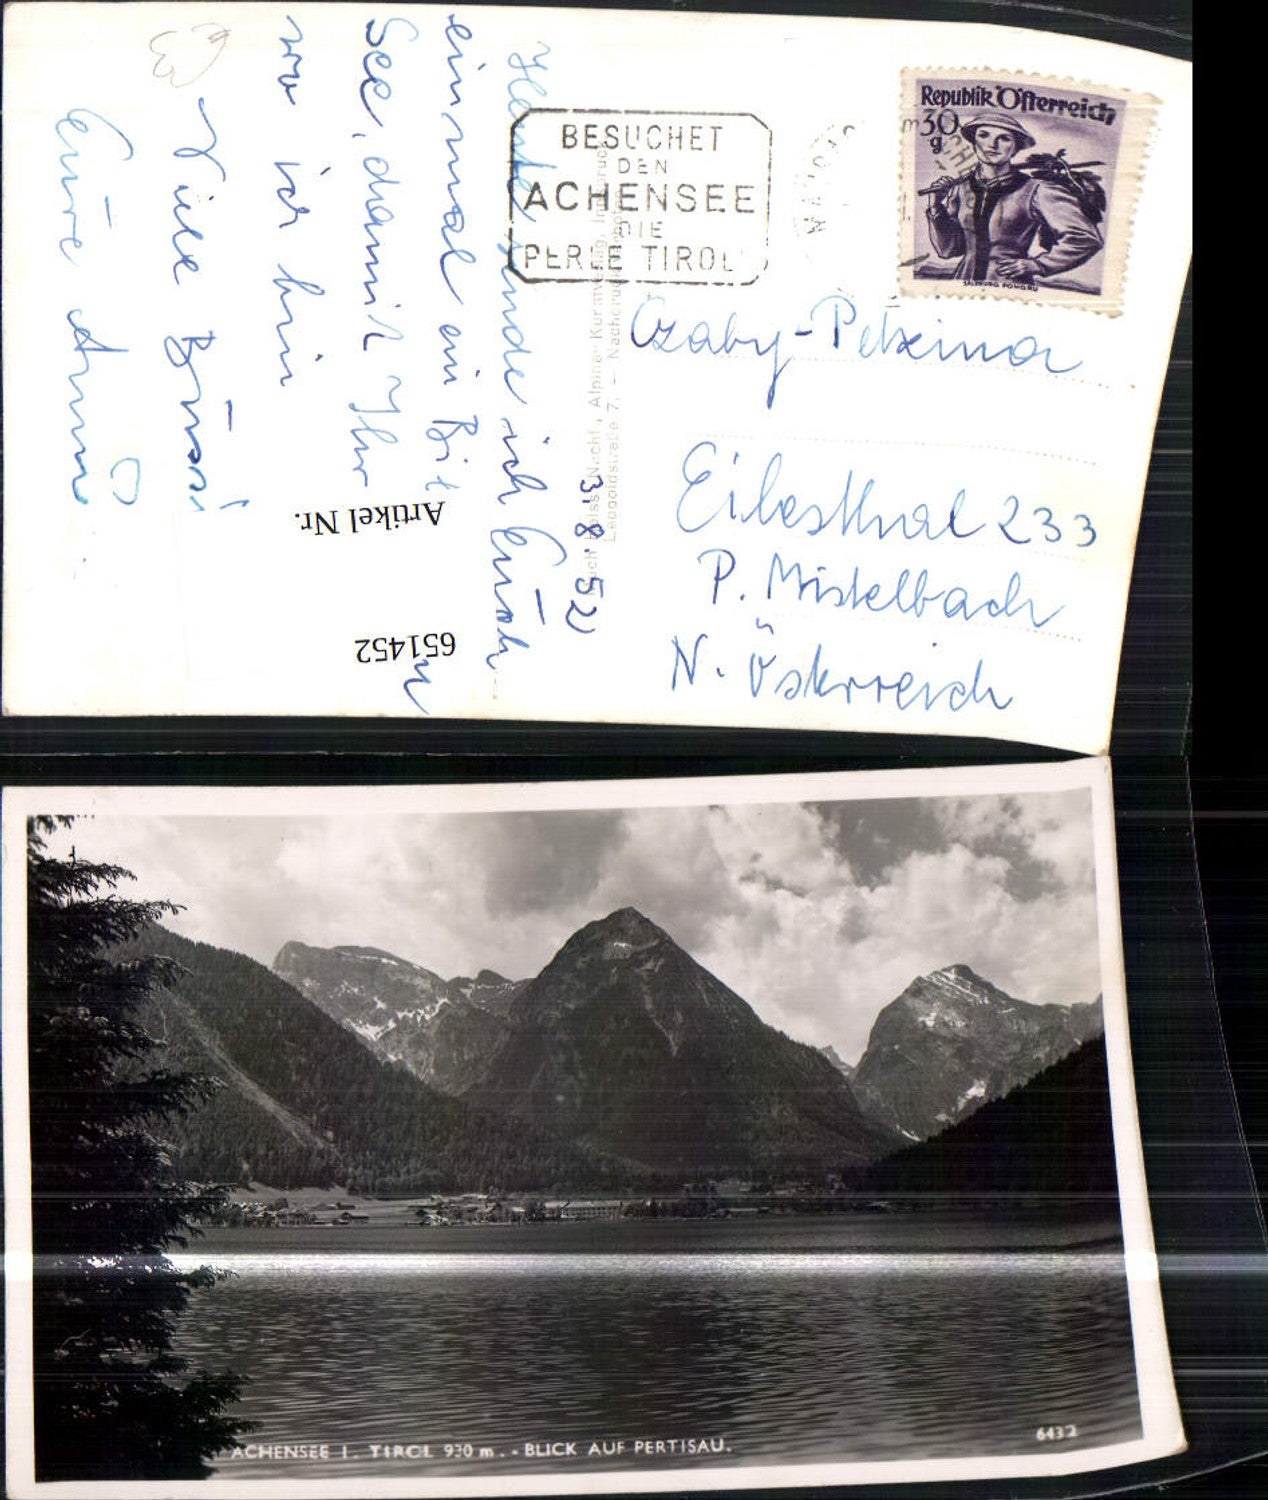 Republik Österreich
30
g
SALZBURG PONGAU
BESUCHET
DEN
ACHENSEE
DIE
PERLE TIROLS
3.8.52
Heute sende ich Euch
einmal ein Bild
See, damit Ihr
wo ich bin
Viele Bussi
Eure Anni
Czaby-Petzina
Eibesthal 233
P. Mistelbach
N. Österreich
Leopoldstraße 7. - Nachdruck
Artikel Nr.
651452
ACHENSEE I. TIROL 930 m. - BLICK AUF PERTISAU.
6432